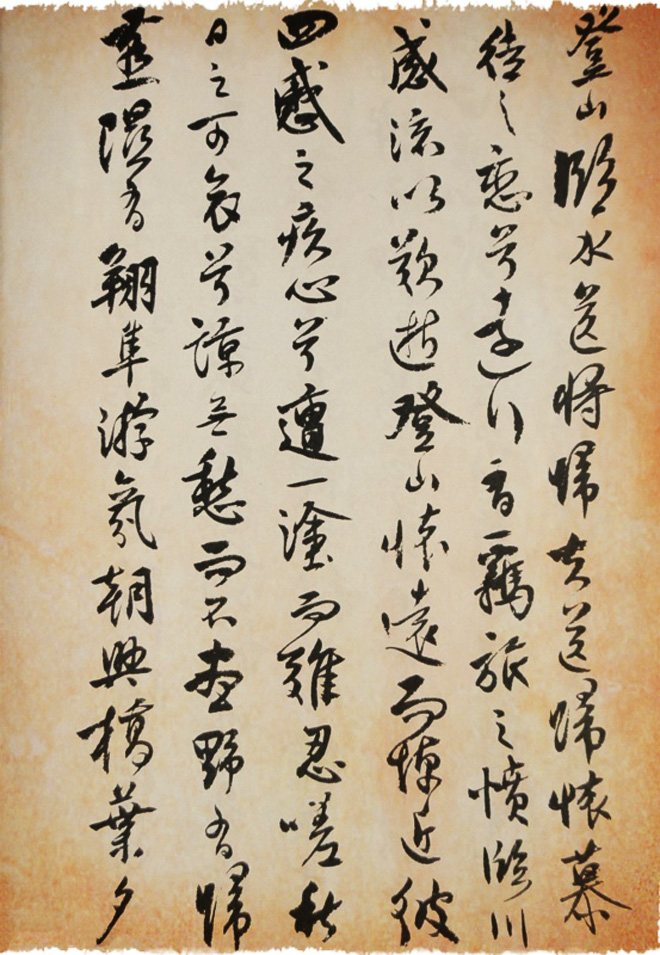 登山臨水送將歸夫送歸懷慕
徒之戀兮遠行有羈旅之憤臨川
感流以歎逝登山懷遠而悼近彼
四慼之疚心兮遭一塗而難忍嗟秋
日之可哀兮諒無愁而不盡野有歸
燕隰有翔隼游氛朝興槁葉夕